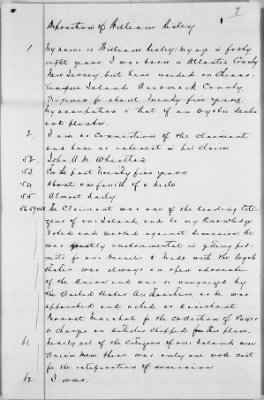 7
Deposition of William Lisley
1 My name is William Lisley; my age is forty
eight years I was born in Atlantic County
New Jersey, but have resided on Chinco-
teague Island Accomack County
Virginia for about Twenty five years
my occupation is that of an Oyster dealer
and planter.
2. I am no connection of the Claimant
and have no interest in his claim
52. John A. M. Whealton
53. For the past twenty five years
54 About one fourth of a mile
55 Almost daily
The Claimant was one of the leading citi-
zens of our Island, and to my knowledge
voted and worked against Secession. He
was greatly instrumental in getting per-
mits for our people to trade with the loyal
States was always an open advocate
of the Union and was so recognized by
the United States Authorities as he was
appointed and acted as Assistant
Provost Marshal for the collection of Taxes
or charges on articles shipped from this place.
61. nearly all of the Citizens of our Island were
Union Men there was only one vote cast
for the ratification of secession
62. I was.